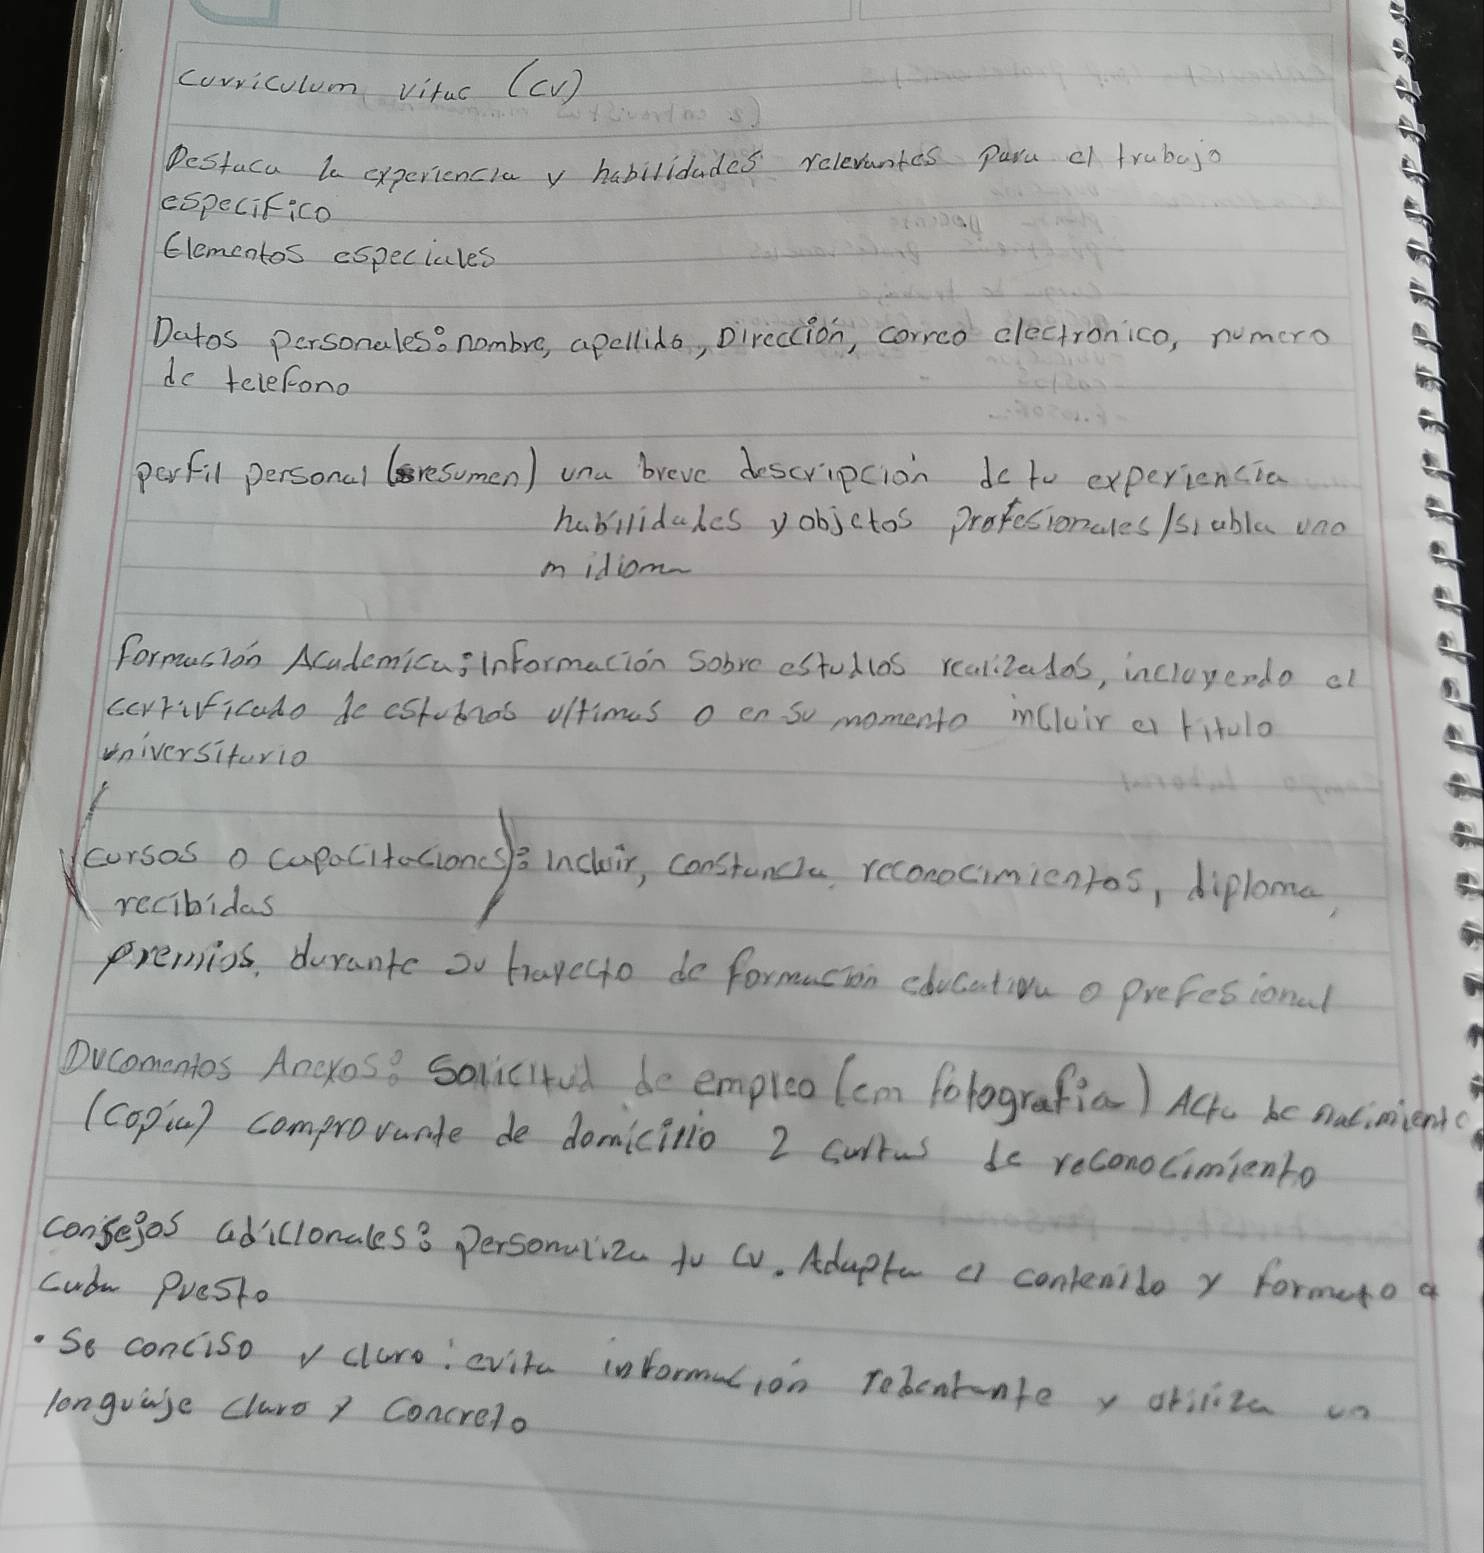 curriculum vitae (cv)
Destaca la experiencia y habilidades relevantes para el trabajo
especifico
Elementos especiales
Datos personales: nombre, apellido, Dirección, correo electronico, numero
de telefono
perfil personal (resumen) una breve descripción de tu experiencia
habilidades y objetos profesionales/si abla uno
m idioma
formación Academica; Información sobre estudios realizados, incluyendo el
certificado de estudios ultimas o en su momento incluir el titulo
universitario
(cursos o capacitaciones): incluir, constancia, reconocimientos, diploma,
recibidas
premios, durante su trayecto de formación educativa o prefesional
Ducomentos Anexos: Solicitud de empleo (cm fotografia) Acta de nacimiento
(copia) comprovante de domicilio 2 cartas de reconocimiento
consejos adicionales: personaliza tu cv. Adapta el contenido y formato a
cada puesto
• Se conciso y claro: evita información y utiliza un
longuaje claro y concreto